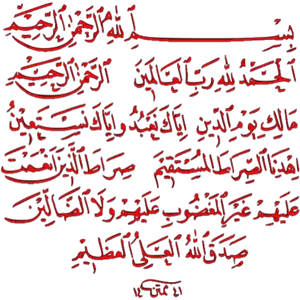 بِسْمِ اللهِ الرَّحْمٰنِ الرَّحِيْمِ
اَلْحَمْدُ لِلّٰهِ رَبِّ الْعَالَمِيْنَ الرَّحْمٰنِ الرَّحِيْمِ
مَالِكِ يَوْمِ الدِّيْنِ اِيَّاكَ نَعْبُدُ وَاِيَّاكَ نَسْتَعِيْنُ
اِهْدِنَا الصِّرَاطَ الْمُسْتَقِيْمَ صِرَاطَ الَّذِيْنَ اَنْعَمْتَ
عَلَيْهِمْ غَيْرِ الْمَغْضُوْبِ عَلَيْهِمْ وَلَا الضَّالِّيْنَ
صَدَقَ اللهُ الْعَلِيُّ الْعَظِيْمُ